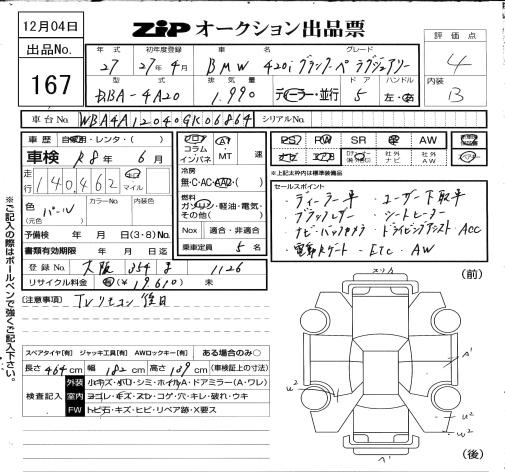 12月04日
出品No.
167
ZIP オークション出品票
評価点
4
内装
B
年式 初年度登録 車名 グレード
27 27年4月 BMW 420i グランクーペ ラグジュアリー
型式 排気量 ドア ハンドル
DBA-4A20 1.990 ディーラー・並行 5 左・右
車台No. WBA4A12040GK06864 シリアルNo.
車歴 自家用・レンタ・( )
車検 R8年 6月
走行 140,462 km マイル
色 (元色) パール カラーNo. 内装色
予備検 年 月 日(3・8)No.
書類有効期限 年 月 日
登録No. 大阪 354 す 1126
リサイクル料金 有(¥19610) 未
フロア コラム インパネ AT・MT 速
冷房 無・C・AC・AAC・( )
燃料 ガソリン・軽油・電気・その他( )
Nox 適合・非適合
乗車定員 5名
PS PW SR AW
ナビ エアB 社外ナビ 社外AW
*上記太枠内は標準装備品
セールスポイント
・ディーラー平 ・ユーザー下取平
・ブラックレザー ・シートヒーター
・ナビ・バックカメラ ・ドライビングアシスト ACC
・電動Rゲート ・ETC ・AW
[注意事項] TVリモコン後日
※ご記入の際はボールペンで強くご記入下さい。
スペアタイヤ[有] ジャッキ工具[有] AWロックキー[有] ある場合のみ○
長さ 464cm 幅 182cm 高さ 139cm (車検証上の寸法)
検査記入
外装 小キズ・小凹・シミ・ホイルA・ドアミラー(A・ワレ)
室内 ヨゴレ・キズ・スレ・コゲ・穴・キレ・破れ・ウキ
FW トビ石・キズ・ヒビ・リペア跡・X要ス
スリA
(前)
A'
U2
U2
U2
A'
(後)